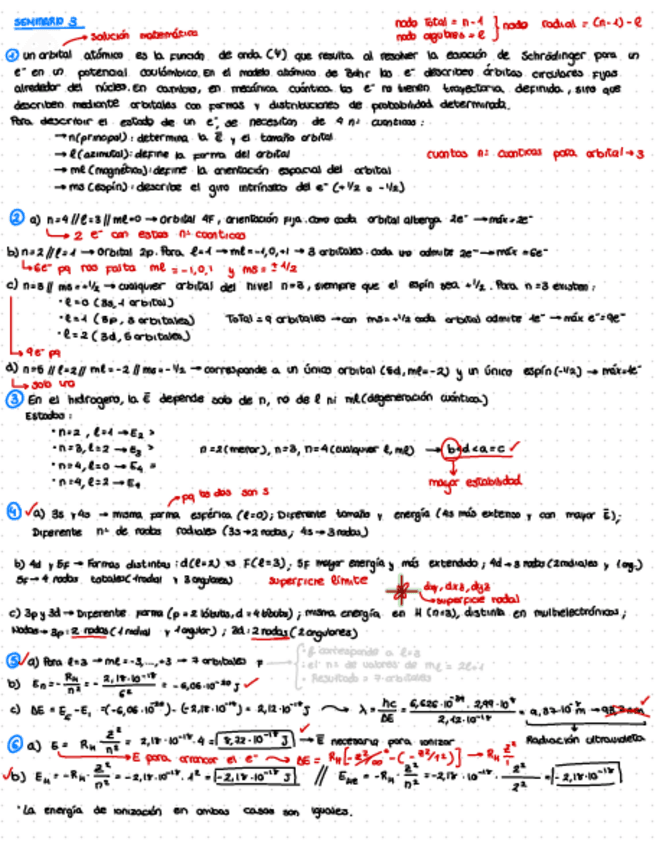 SEMINARIO 3
nodo Total = n-1 } nodo radial = (n-1)-l
nodo angulares = l
→ solución matemática
① un orbital atómico es la función de onda (Ψ) que resulta al resolver la ecuación de Schrödinger para un
e⁻ en un potencial coulómbico. En el modelo atómico de Bohr los e⁻ describen órbitas circulares fijas
alrededor del núcleo. en cambio, en mecánica cuántica los e⁻ no tienen trayectoria definida, sino que
describen mediante orbitales con formas y distribuciones de probabilidad determinada.
Para describir el estado de un e⁻, se necesitan de 4 nº cuánticos:
→ n(principal): determina la E y el tamaño orbital
→ l(azimutal): define la forma del orbital
cuantos nº cuanticos para orbital → 3
→ ml (magnético): define la orientación espacial del orbital
→ ms (espín): describe el giro intrínseco del e⁻ (+1/2 o -1/2)
② a) n=4 // l=3 // ml=0 → Orbital 4F, orientación fija. como cada orbital alberga 2e⁻ → máx=2e⁻
→ 2 e⁻ con estos nº cuanticos
b) n=2 // l=1 → Orbital 2p. Para l=1 → ml=-1,0,+1 → 3 orbitales. cada uno admite 2e⁻ → máx=6e⁻
→ 6e⁻ pq nos falta ml = -1,0,1 y ms = ± 1/2
c) n=3 // ms=+1/2 → cualquier orbital del nivel n=3, siempre que el espín sea +1/2. Para n=3 existen:
· l=0 (3s, 1 orbital)
· l=1 (3p, 3 orbitales) Total = 9 orbitales → con ms=+1/2 cada orbital admite 1e⁻ → máx e⁻=9e⁻
· l=2 (3d, 5 orbitales)
→ 9e⁻ pq
d) n=5 // l=2 // ml=-2 // ms=-1/2 → corresponde a un único orbital (5d, ml=-2) y un único espín (-1/2) → máx=1e⁻
→ solo uno
③ En el hidrogeno, la E depende solo de n, no de l ni ml (degeneración cuántica)
Estados:
· n=2, l=1 → E₂ >
· n=3, l=2 → E₃ > n=2(menor), n=3, n=4 (cualquier l, ml) → b<d<a=c ✓
· n=4, l=0 → E₄ =
· n=4, l=2 → E₄
mayor estabilidad
→ pq los dos son s
④ ✓a) 3s y 4s → misma forma esférica (l=0); Diferente tamaño y energía (4s más extenso y con mayor E);
Diferente nº de nodos radiales (3s→2 nodos; 4s→3 nodos)
b) 4d y 5F → Formas distintas: d(l=2) vs F(l=3); 5F mayor energía y más extendido; 4d→3 nodos (2 radiales y 1 ang.)
5F→ 4 nodos totales (1 radial y 3 angulares) superficie límite
→ superficie nodal
c) 3p y 3d → Diferente forma (p = 2 lóbulos, d = 4 lóbulos); misma energía en H (n=3), distinta en multielectrónicos;
Nodos → 3p: 2 nodos (1 radial y 1 angular); 3d: 2 nodos (2 angulares)
⑤ ✓a) Para l=3 → ml=-3,...,+3 → 7 orbitales F
· f corresponde a l=3
· el nº de valores de ml = 2l+1
· Resultado = 7 orbitales
b) En = - RH/n² = - 2,18·10⁻¹⁸/6² = -6,06·10⁻²⁰ J ✓
c) ΔE = E₆-E₁ = (-6,06·10⁻²⁰) - (-2,18·10⁻¹⁸) = 2,12·10⁻¹⁸ J → λ = hc/ΔE = 6,626·10⁻³⁴ · 2,99·10⁸/2,12·10⁻¹⁸ = 9,37·10⁻⁸ m →
Radiación ultravioleta
⑥ a) E = RH z²/n² = 2,18·10⁻¹⁸·4 = 8,72·10⁻¹⁸ J → E necesaria para ionizar
→ E para arrancar el e⁻ → ΔE = RH [-z²/∞² - (-z²/1²)] → RH z²/1
✓b) EH = -RH · z²/n² = -2,18·10⁻¹⁸ · 1² = -2,18·10⁻¹⁸ J // EHe = -RH · z²/n² = -2,18·10⁻¹⁸ · 2²/2² = -2,18·10⁻¹⁸ J
· La energía de ionización en ambos casos son iguales.